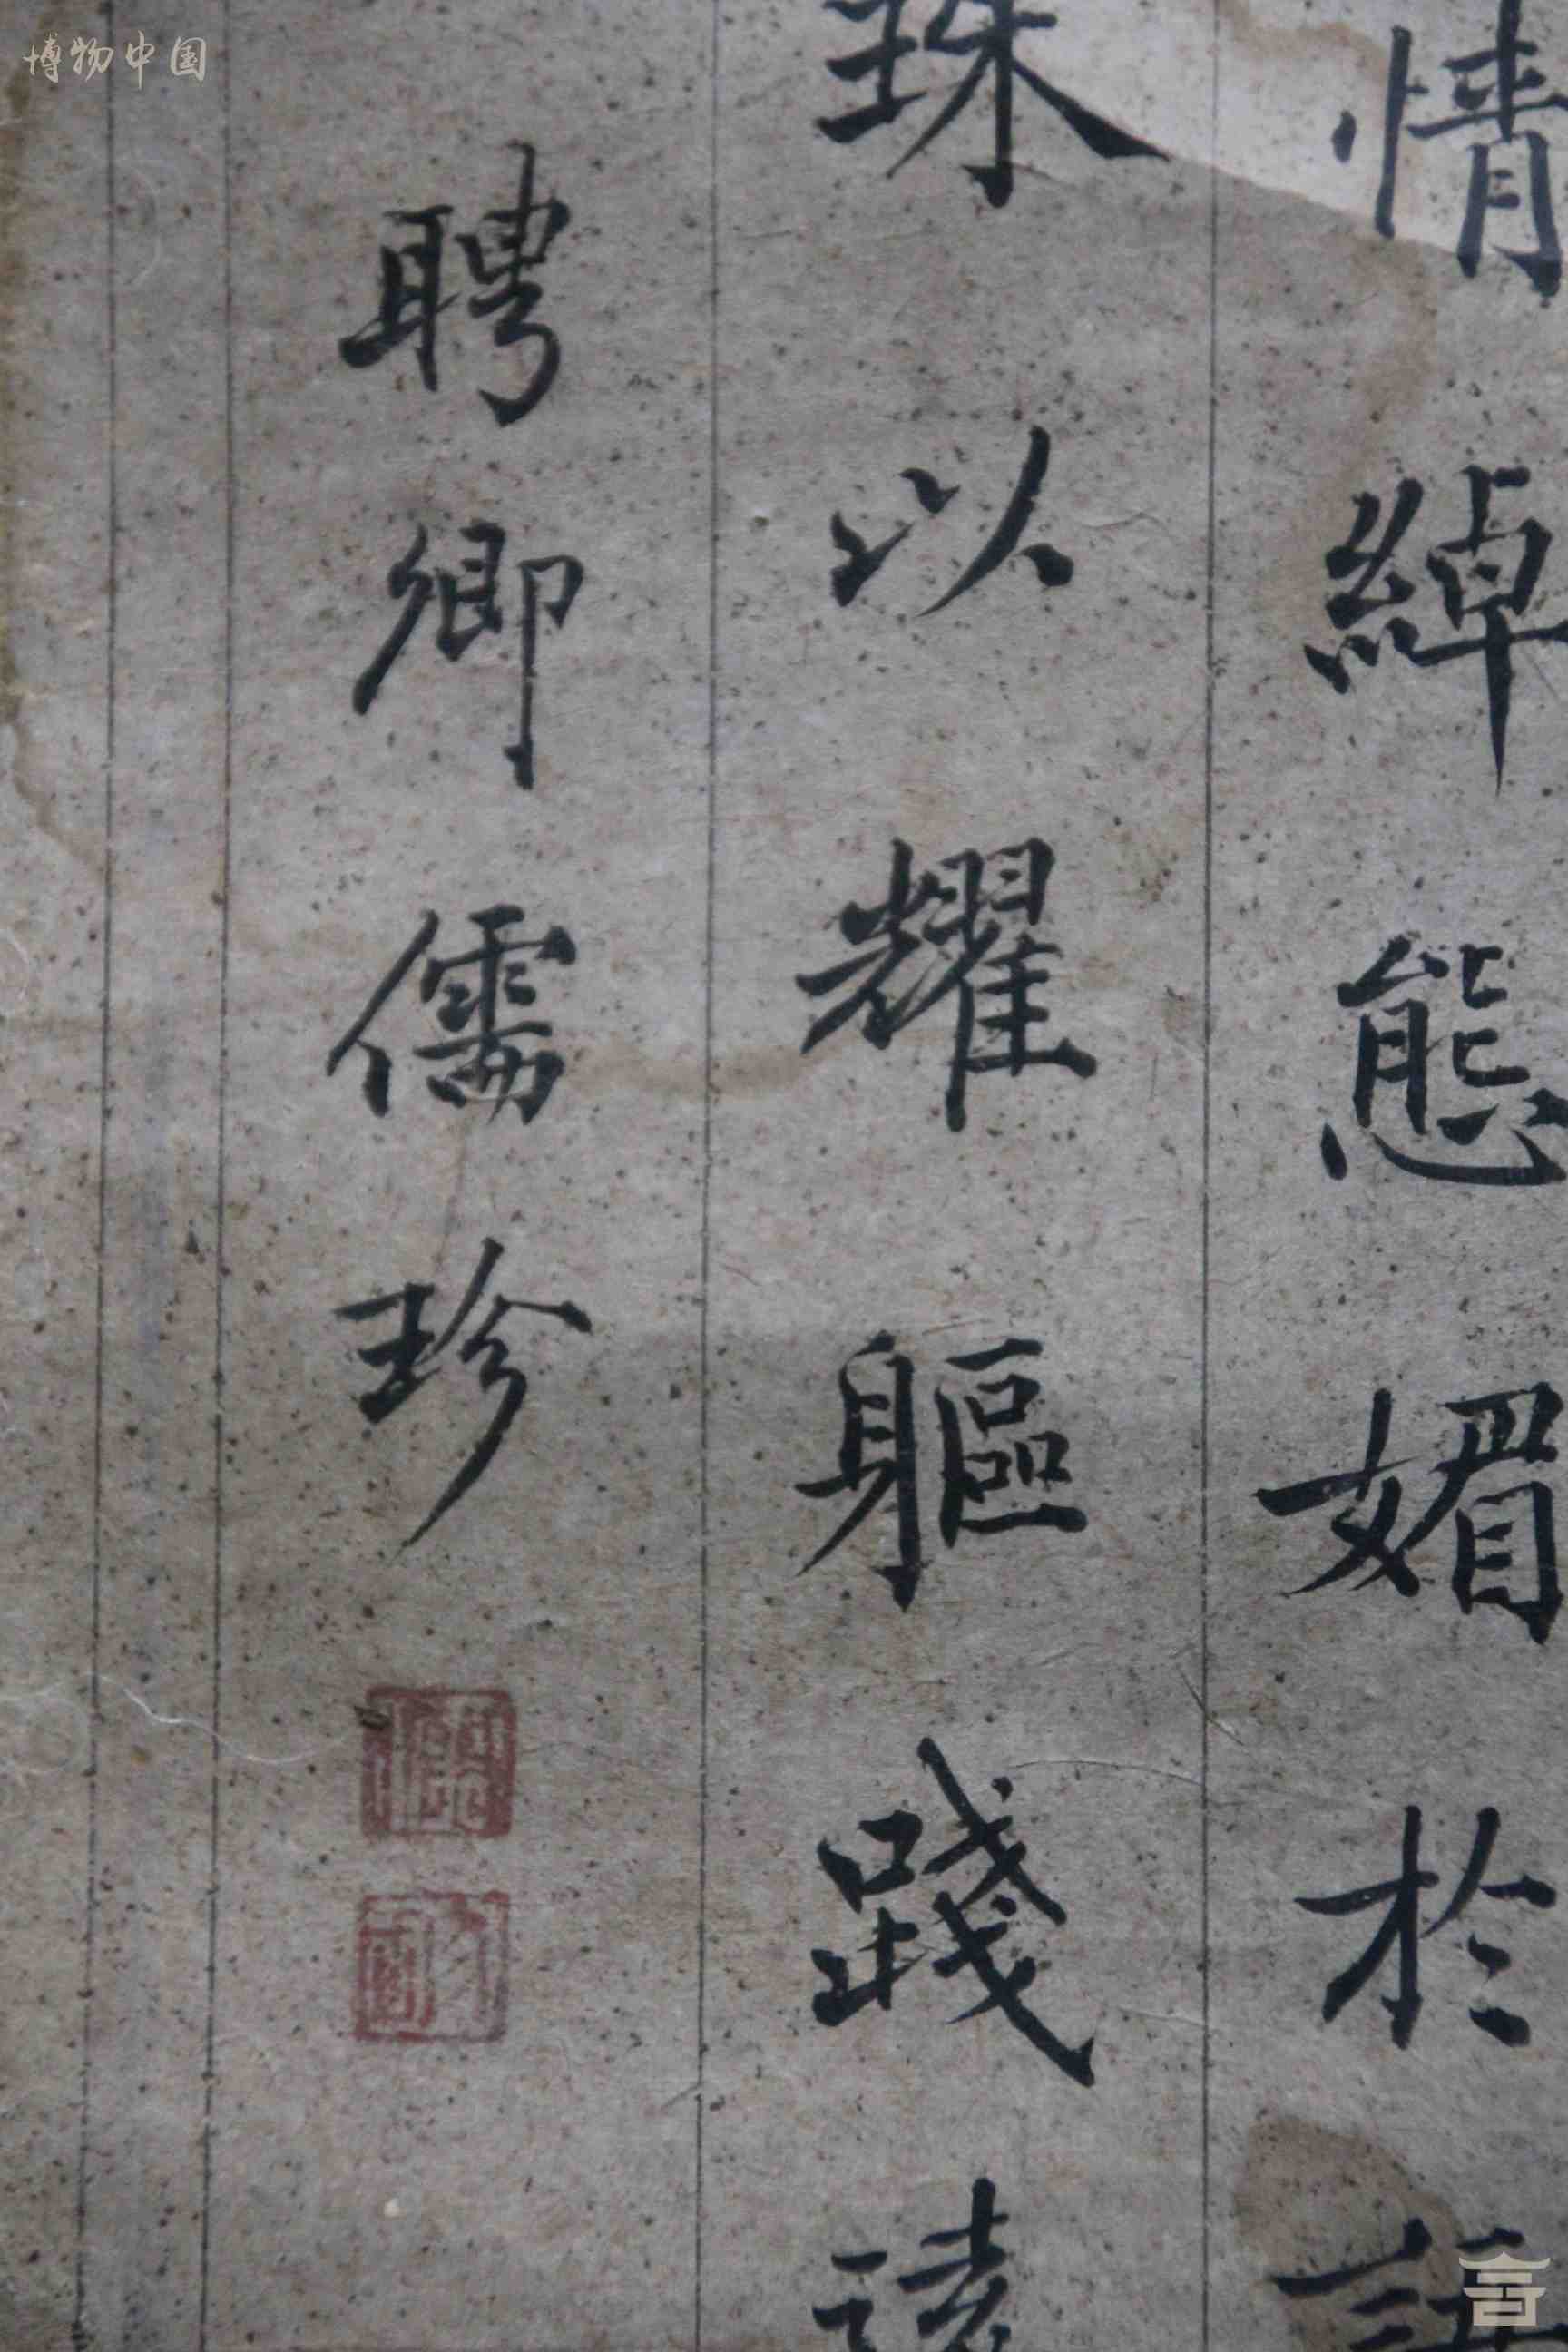 博物中国
情綽態媚於語
珠以耀軀踐遠
聘卿儒珍